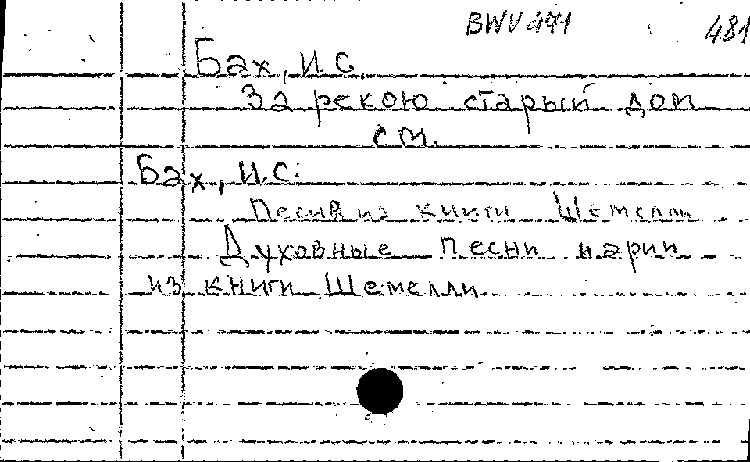 BWV 471 481
Бах, И.С.
За рекою старый дом
см.
Бах, И.С.
Песни из книги Шемелли
Духовные песни и арии
из книги Шемелли